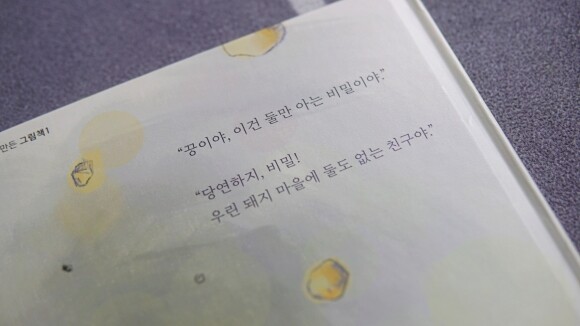 만든 그림책1
“꿍이야, 이건 둘만 아는 비밀이야.”
“당연하지, 비밀!
우린 돼지 마을에 둘도 없는 친구야.”